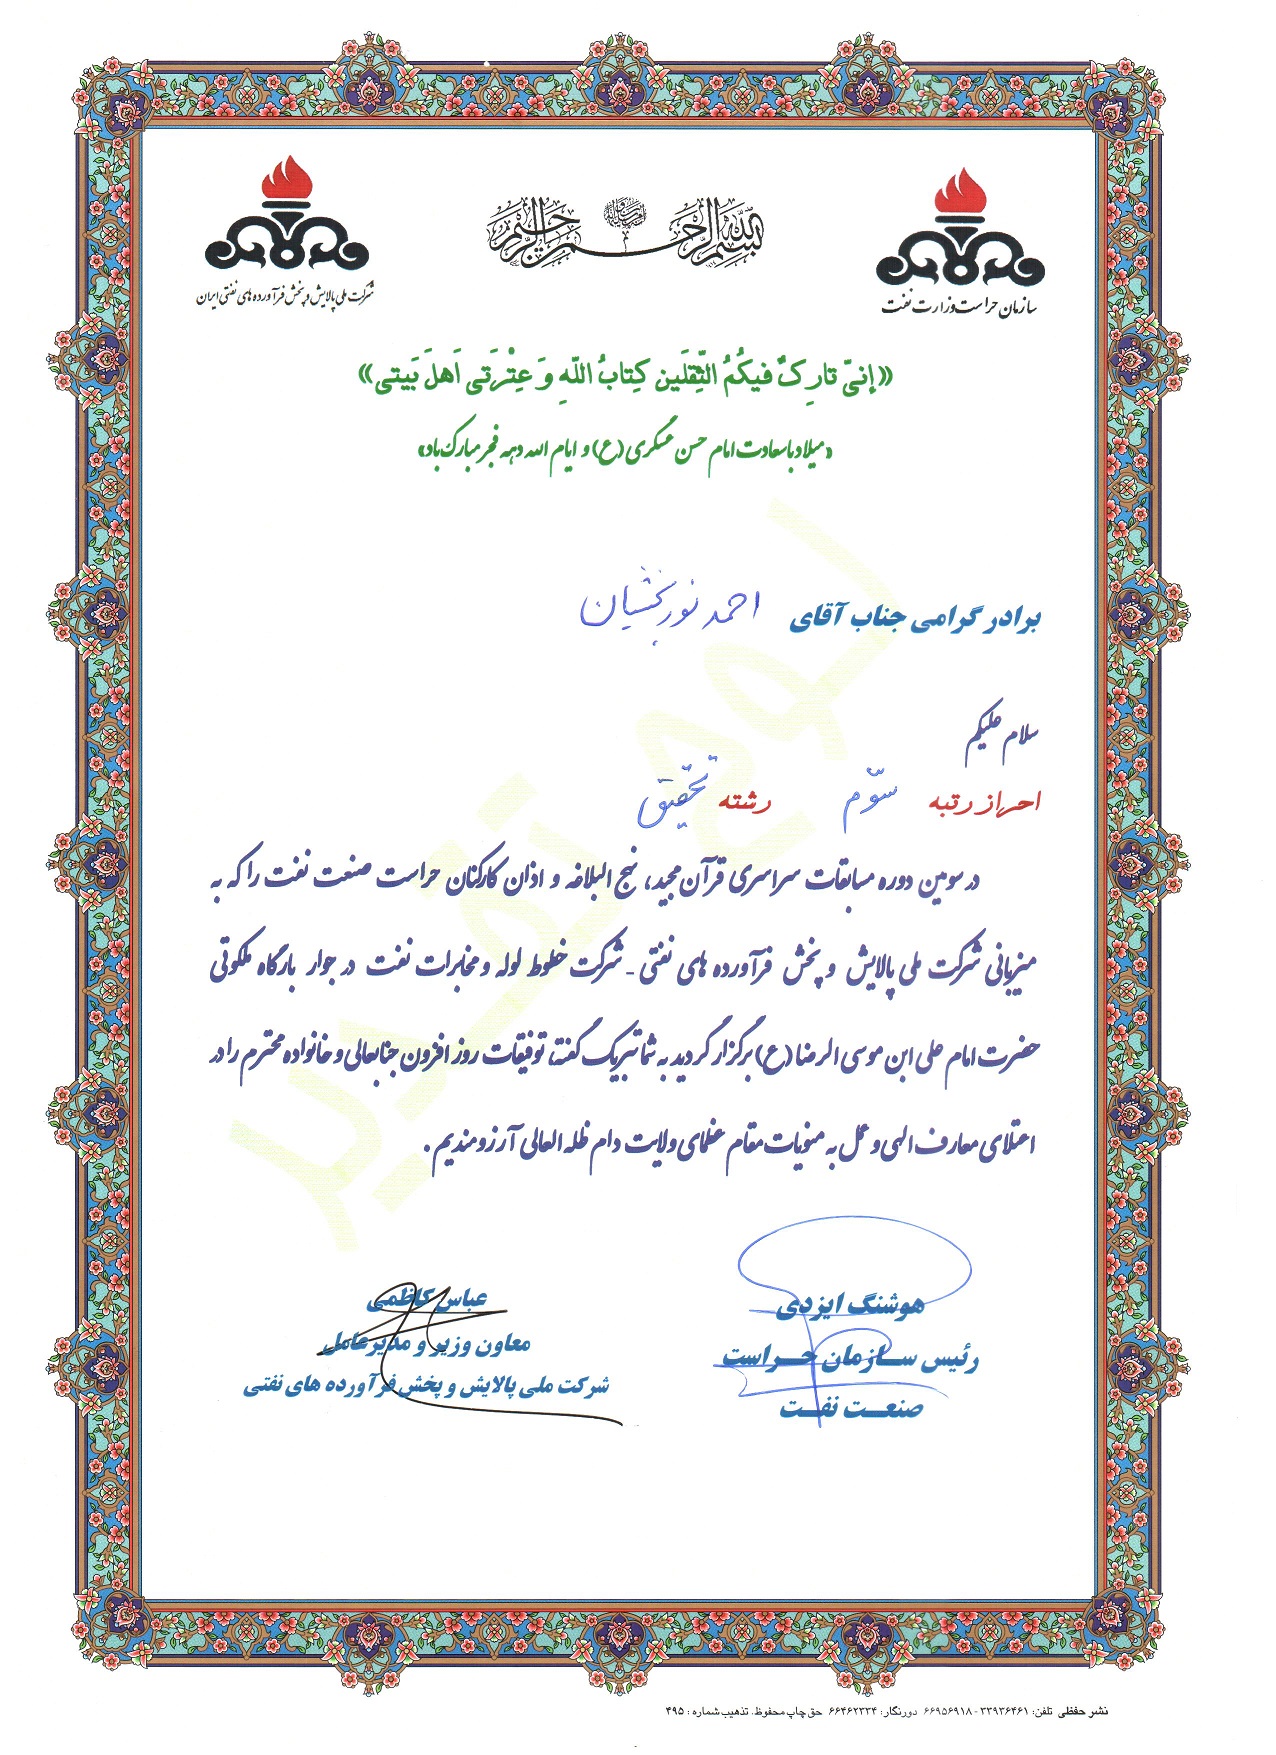 بسم الله الرحمن الرحیم
سازمان حراست وزارت نفت
شرکت ملی پالایش و پخش فرآورده های نفتی ایران
«إنیّ تارِکٌ فیکُمُ الثِّقلَین کِتابُ اللّهِ وَ عِتْرَتی اَهلَ بَیتی»
«میلاد با سعادت امام حسن عسکری (ع) و ایام الله دهه فجر مبارک باد»
برادر گرامی جناب آقای احمد نوربخشیان
سلام علیکم
احراز رتبه سوّم رشته تحقیق
در سومین دوره مسابقات سراسری قرآن مجید، نهج البلاغه و اذان کارکنان حراست صنعت نفت را که به
میزبانی شرکت ملی پالایش و پخش فرآورده های نفتی - شرکت خطوط لوله و مخابرات نفت در جوار بارگاه ملکوتی
حضرت امام علی ابن موسی الرضا (ع) برگزار گردید به شما تبریک گفته توفیقات روز افزون جنابعالی و خانواده محترم را در
اعتلای معارف الهی و عمل به منویات مقام عظمای ولایت دام ظله العالی آرزومندیم.
هوشنگ ایزدی
رئیس سازمان حراست
صنعت نفت
عباس کاظمی
معاون وزیر و مدیرعامل
شرکت ملی پالایش و پخش فرآورده های نفتی
لوح تقدیر
نشر حفظی تلفن: ۳۳۹۳۶۴۶۱ - ۶۶۹۵۶۹۱۸ دورنگار: ۶۶۴۶۲۳۳۴ حق چاپ محفوظ. تذهیب شماره: ۴۹۵